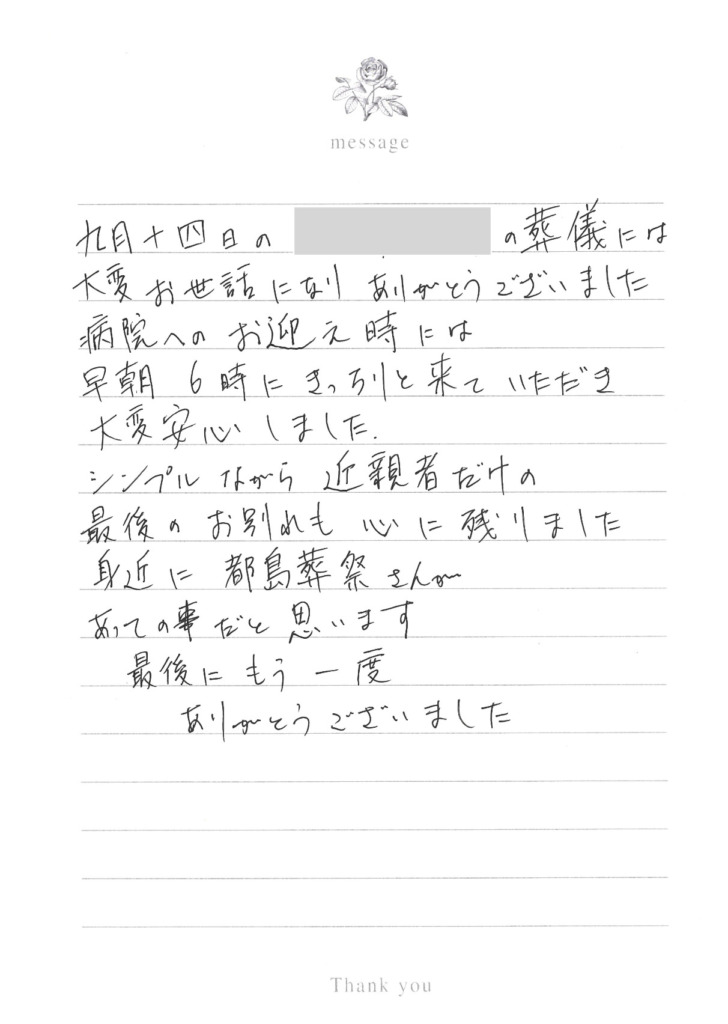 message
九月十四日の の葬儀には
大変お世話になり ありがとうございました
病院へのお迎え時には
早朝 6時にきっちりと来ていただき
大変安心しました.
シンプルながら近親者だけの
最後のお別れも心に残りました
身近に都島葬祭さんが
あっての事だと思います
最後にもう一度
ありがとうございました
Thank you